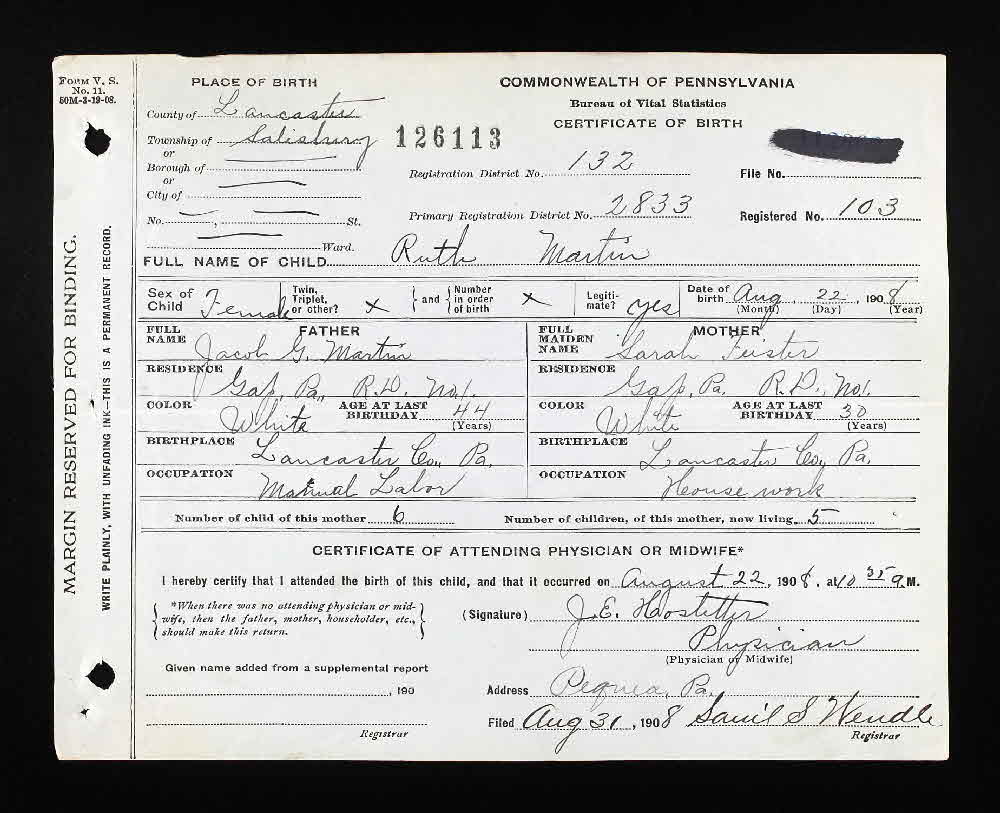 FORM V. S.
No. 11.
50M-3-19-08.
MARGIN RESERVED FOR BINDING.
WRITE PLAINLY, WITH UNFADING INK—THIS IS A PERMANENT RECORD.
PLACE OF BIRTH
County of Lancaster
Township of Salisbury
or
Borough of
or
City of
No. , St.
Ward.
126113
COMMONWEALTH OF PENNSYLVANIA
Bureau of Vital Statistics
CERTIFICATE OF BIRTH
Registration District No. 132
File No.
Primary Registration District No. 2833
Registered No. 103
FULL NAME OF CHILD Ruth Martin
Sex of Child Female
Twin, Triplet, or other? X
and Number in order of birth X
Legitimate? yes
Date of birth Aug. 22, 1908
(Month) (Day) (Year)
FATHER
FULL NAME Jacob G. Martin
RESIDENCE Gap, Pa., R.D. No1.
COLOR White AGE AT LAST BIRTHDAY 44
(Years)
BIRTHPLACE Lancaster Co., Pa.
OCCUPATION Manual Labor
MOTHER
FULL MAIDEN NAME Sarah Feister
RESIDENCE Gap, Pa. R.D., No1.
COLOR White AGE AT LAST BIRTHDAY 30
(Years)
BIRTHPLACE Lancaster Co., Pa.
OCCUPATION House work
Number of child of this mother 6 Number of children, of this mother, now living 5
CERTIFICATE OF ATTENDING PHYSICIAN OR MIDWIFE*
I hereby certify that I attended the birth of this child, and that it occurred on August 22, 1908, at 10 35 a M.
*When there was no attending physician or mid-
wife, then the father, mother, householder, etc.,
should make this return.
(Signature) J.E. Hostetter
Physician
(Physician or Midwife)
Given name added from a supplemental report
, 190
Registrar
Address Pequea, Pa.
Filed Aug 31, 1908 Saml S Wendle
Registrar